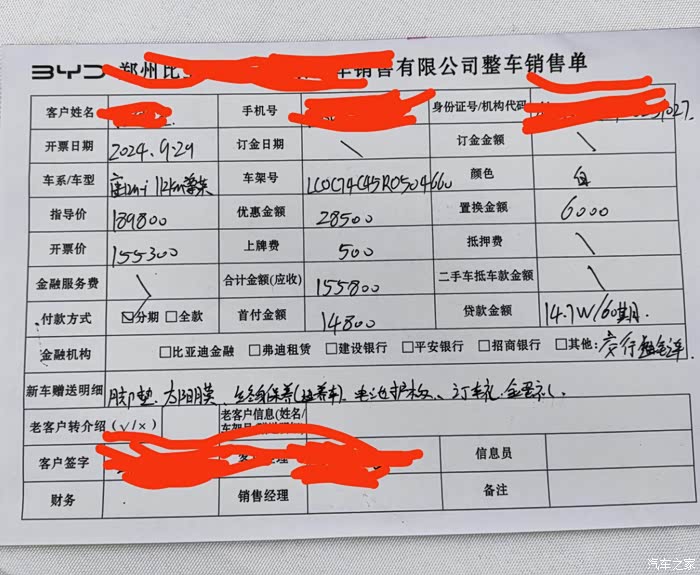 BYD 郑州比 车销售有限公司整车销售单
客户姓名 手机号 身份证号/机构代码 027
开票日期 2024.9.29 订金日期 \ 订金金额 \
车系/车型 112km 车架号 LC0C74C45R0504660 颜色 白
指导价 189800 优惠金额 28500 置换金额 6000
开票价 155300 上牌费 500 抵押费 \
金融服务费 \ 合计金额(应收) 155800 二手车抵车款金额 \
付款方式 ☑分期 □全款 首付金额 14800 贷款金额 14.1W/60期.
金融机构 □比亚迪金融 □弗迪租赁 □建设银行 □平安银行 □招商银行 □其他: 交行
新车赠送明细 脚垫. 太阳膜. 终身保养( 电池护板、订车礼.
老客户转介绍 (√/×) 老客户信息(姓名/
车架号
客户签字 经理 信息员
财务 销售经理 备注
汽车之家